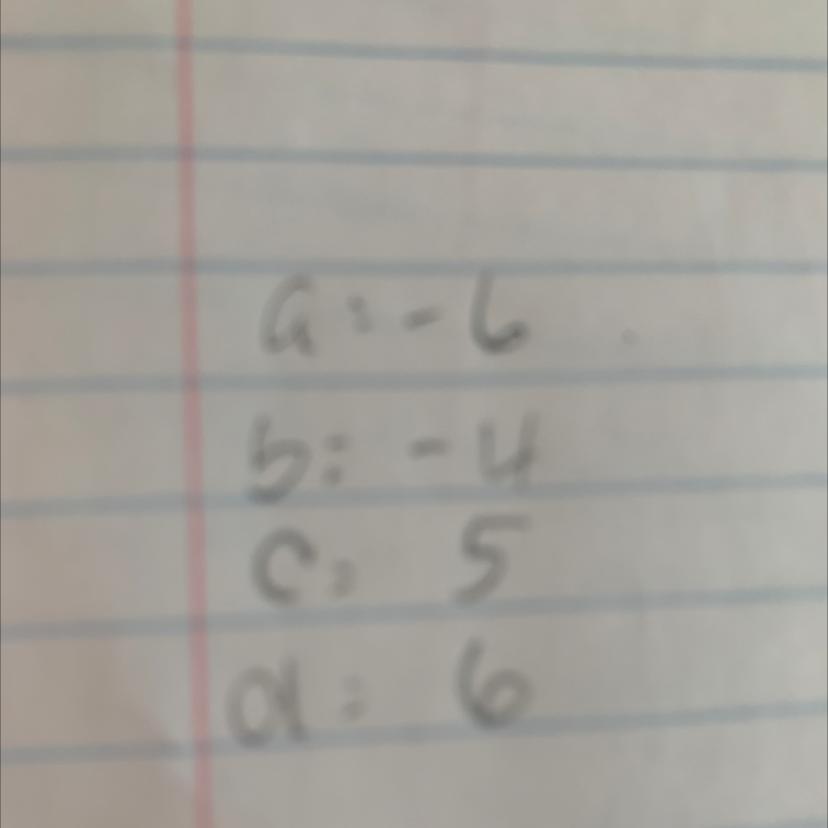 a: -6
b: -4
c: 5
d: 6